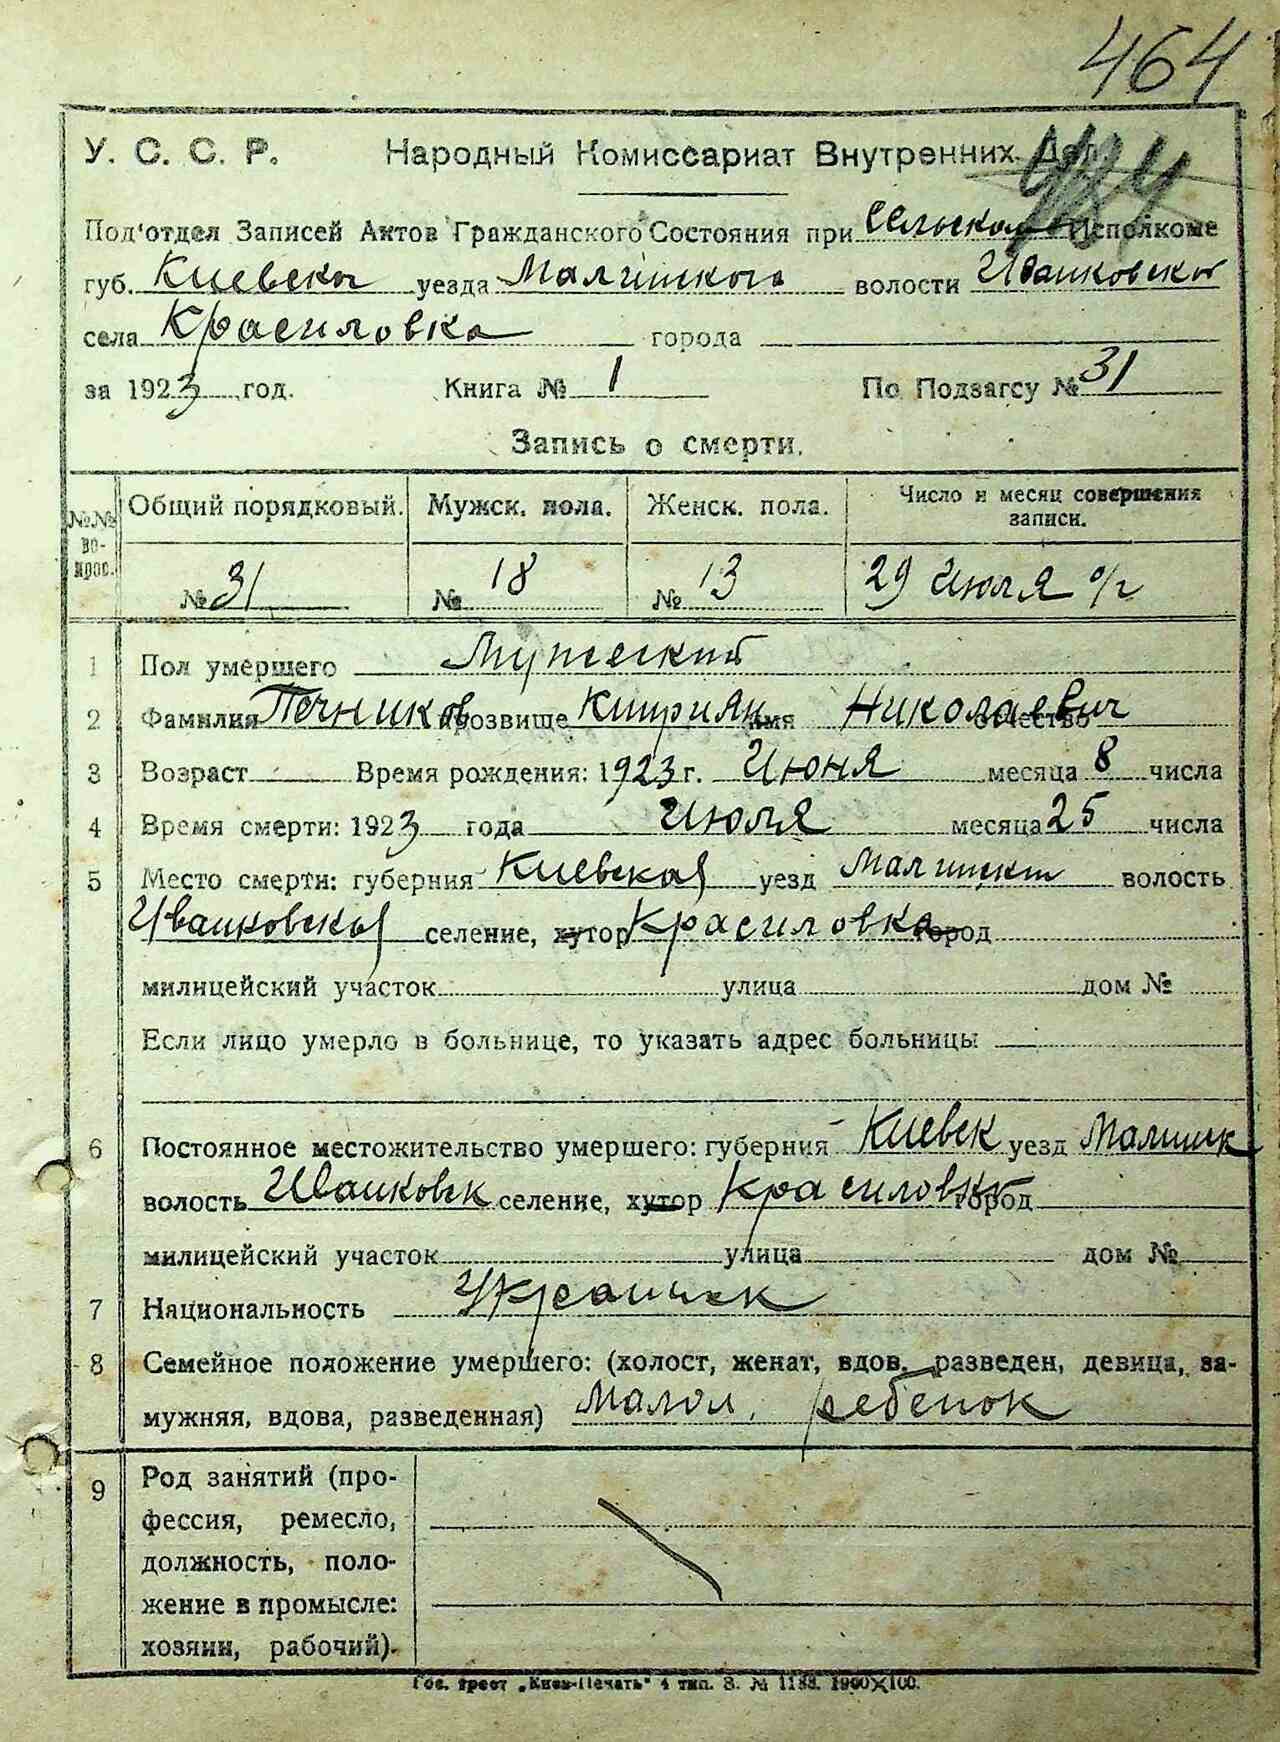 464
У. С. С. Р. Народный Комиссариат Внутренних Дел.
Под'отдел Записей Актов Гражданского Состояния при Сельском Исполкоме
губ. Киевской уезда Малинского волости Иванковской
села Красиловка города
за 1923 год. Книга № 1 По Подзагсу № 31
Запись о смерти.
№№ во-прос. Общий порядковый. Мужск. пола. Женск. пола. Число и месяц совершения записи.
№ 31 № 18 № 13 29 Июля с/г
1 Пол умершего Мужеский
2 Фамилия Печников прозвище Киприян имя Николаевич отчество
3 Возраст Время рождения: 1923 г. Июня месяца 8 числа
4 Время смерти: 1923 года Июля месяца 25 числа
5 Место смерти: губерния Киевская уезд Малинский волость
Иванковская селение, хутор Красиловка город
милицейский участок улица дом №
Если лицо умерло в больнице, то указать адрес больницы
6 Постоянное местожительство умершего: губерния Киевск уезд Малинск
волость Иванковск селение, хутор Красиловка город
милицейский участок улица дом №
7 Национальность Украинск
8 Семейное положение умершего: (холост, женат, вдов, разведен, девица, за-
мужняя, вдова, разведенная) Малол. ребенок
9 Род занятий (про-
фессия, ремесло,
должность, поло-
жение в промысле:
хозяин, рабочий).
Гос. трест „Киев-Печать" 4 тип. З. № 1188. 1900×100.